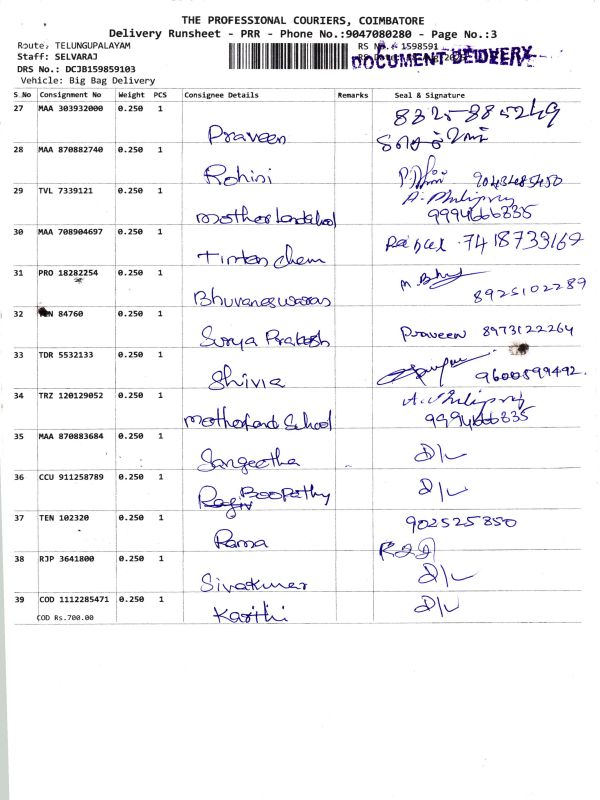 THE PROFESSIONAL COURIERS, COIMBATORE
Delivery Runsheet - PRR - Phone No.:9047080280 - Page No.:3
Route: TELUNGUPALAYAM RS No.: 1598591
Staff: SELVARAJ DOCUMENT DELIVERY
DRS No.: DCJB159859103
Vehicle: Big Bag Delivery
S No Consignment No Weight PCS Consignee Details Remarks Seal & Signature
27 MAA 303932000 0.250 1 Praveen
28 MAA 870882740 0.250 1 Rohini
29 TVL 7339121 0.250 1 9994666835
30 MAA 708904697 0.250 1 chem 7418733169
31 PRO 18282254 0.250 1 8925102289
32 84760 0.250 1 Surya Prakash Praveen 8973122264
33 TDR 5532133 0.250 1 Shivia 9600599492.
34 TRZ 120129052 0.250 1 Motherland School 9994666835
35 MAA 870883684 0.250 1 Sangeetha D/L
36 CCU 911258789 0.250 1 Boopathy D/L
37 TEN 102320 0.250 1 Rama 902525850
38 RJP 3641800 0.250 1 Sivakumar D/L
39 COD 1112285471 0.250 1 Karthi D/L
COD Rs.700.00